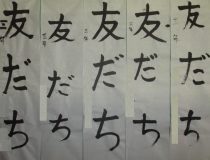 友だち
友だち
友だち
友だち
友だち